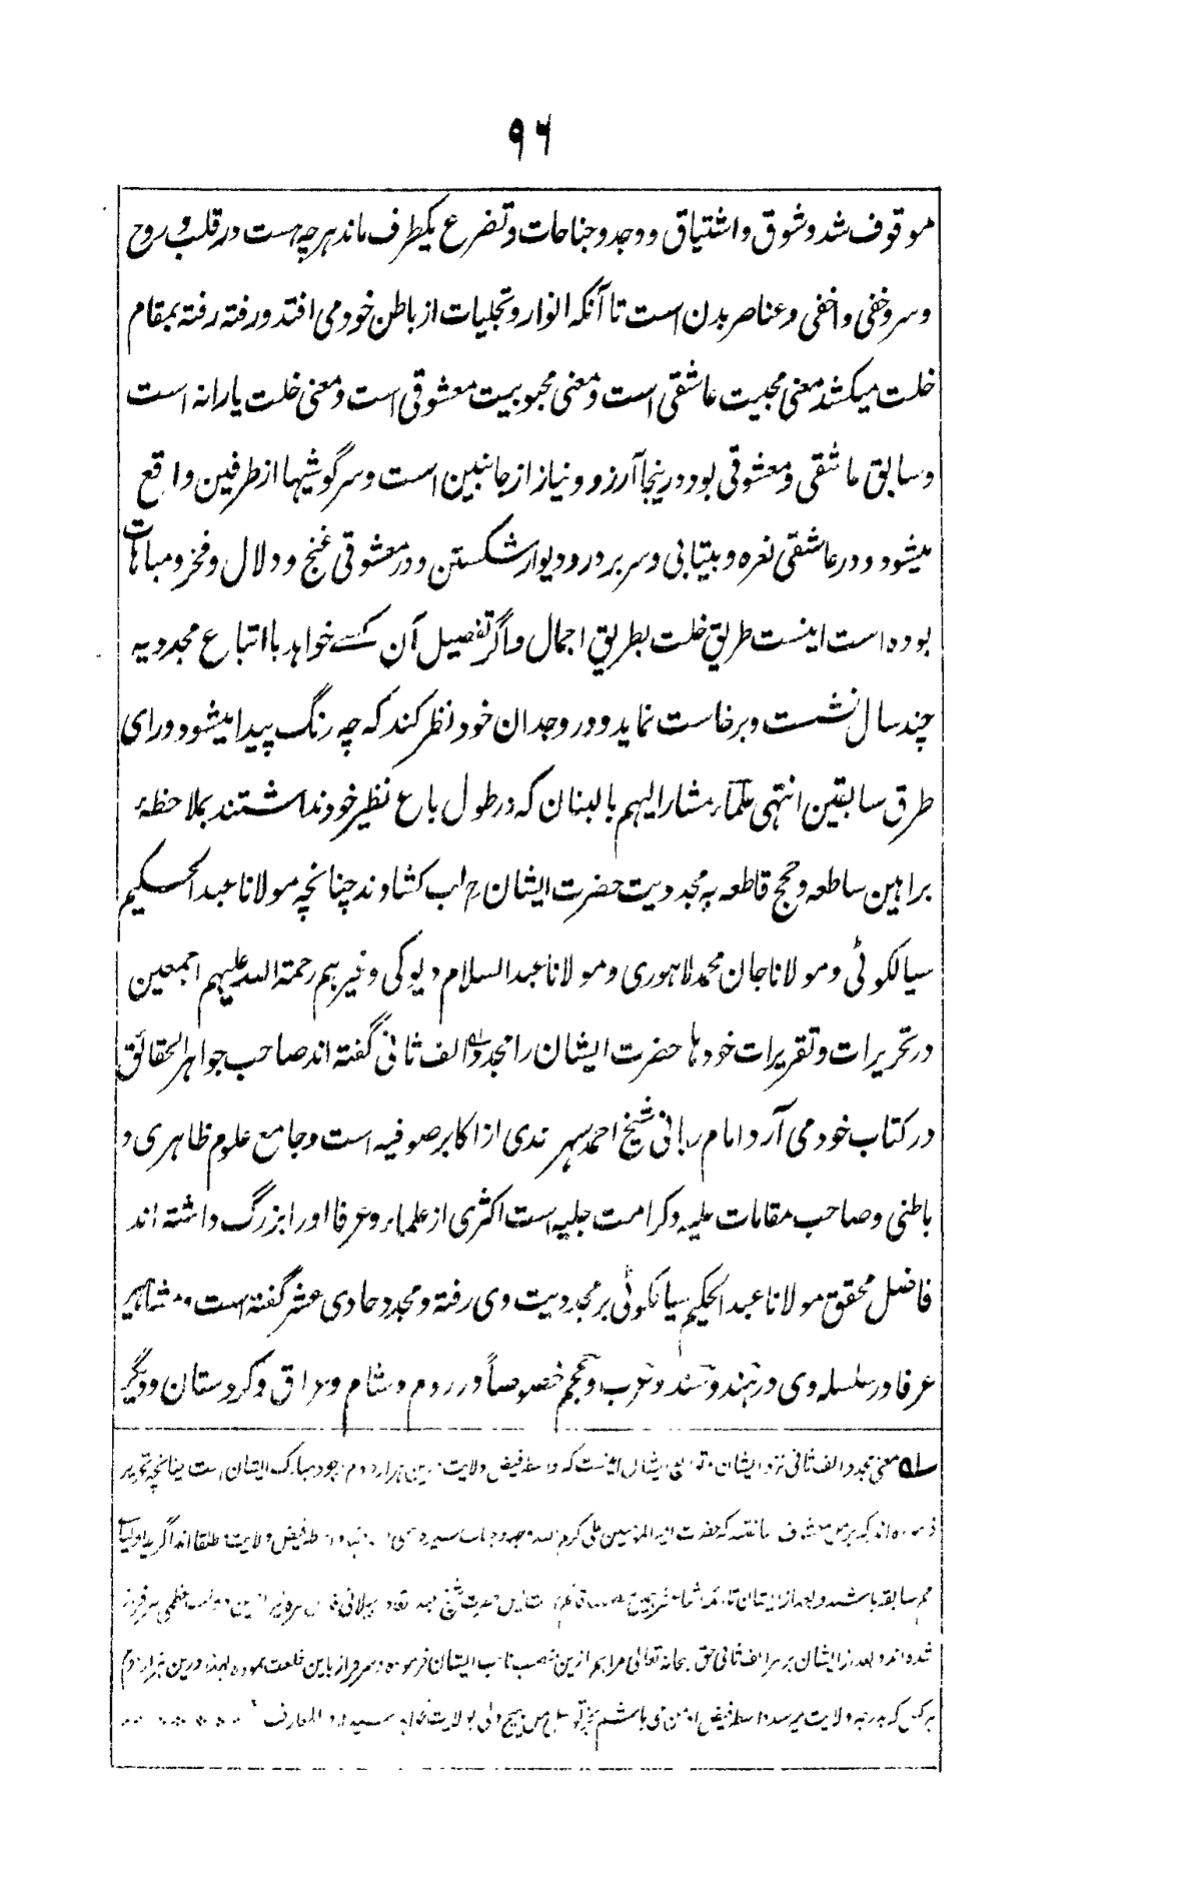 ۹۶
موقوف شد و شوق و اشتیاق و وجد و جناحات و تضرع یکطرف ماند هرچه هست در قلب و روح
و سر و خفی و اخفی و عناصر بدن است تا آنکه انوار و تجلیات از باطن خود می افتد و رفته رفته بمقام
خلت میکشد معنی محبیت عاشقی است و معنی محبوبیت معشوقی است و معنی خلت یارانه است
و سابق عاشقی و معشوقی بود درینجا آرزو و نیاز از جانبین است و سرگوشیها از طرفین واقع
میشود و در عاشقی نعره و بیتابی و سر بر در و دیوار شکستن و در معشوقی غنج و دلال و فخر و مباهات
بوده است اینست طریق خلت بطریق اجمال و اگر تفصیل آن کسے خواهد با اتباع مجددیه
چند سال نشست و برخاست نماید و در وجدان خود نظر کند که چه رنگ پیدا میشود ورای
طرق سابقین انتهی علمآء مشار الیهم بالبنان که در طول باع نظیر خود نداشتند بملاحظهٔ
براهین ساطعه و حجج قاطعه به مجددیت حضرت ایشان رح لب کشاوند چنانچه مولانا عبد الحکیم
سیالکوٹی و مولانا جان محمد لاهوری و مولانا عبد السلام دیوکی و غیرهم رحمة الله علیهم اجمعین
در تحریرات و تقریرات خودها حضرت ایشان را مجدد الف ثانی گفته اند صاحب جواهر الحقائق
در کتاب خود می آرد امام ربانی شیخ احمد سهرندی از اکابر صوفیه است و جامع علوم ظاهری و
باطنی و صاحب مقامات علیه و کرامت جلیه است اکثری از علماء و عرفا او را بزرگ داشته اند
فاضل محقق مولانا عبد الحکیم سیالکوٹی بر مجددیت وی رفته و مجدد حادی عشر گفته است و مشاهیر
عرفا در سلسله وی در هند و سند و عرب و عجم خصوصاً در روم و شام و عراق و کردستان و دیگر
سلہ معنی مجدد الف ثانی نزد ایشان ایشان اینست که واسطه فیض ولایت درین هزار دوم وجود مبارک ایشان است چنانچه تحریر
اند که بر من منکشف که حضرت امیر المؤمنین علی کرم الله وجهه و جناب فیض ولایت مطلقا اند اگر چه اولیاء
امم سابقه باشند و بعد از ایشان تا حضرت شیخ عبد القادر جیلانی عظمی سرفراز
شده اند و بعد از ایشان بر سر الف ثانی حق سبحانه تعالی مرا هم ازین منصب نائب ایشان فرموده و سرفراز باین خلعت نموده لهذا درین هزار دوم
هر کس که بدرجه ولایت میرسد واسطه فیض او من می باشم بجز توسل من هیچ ولی بولایت نخواهد رسید المعارف